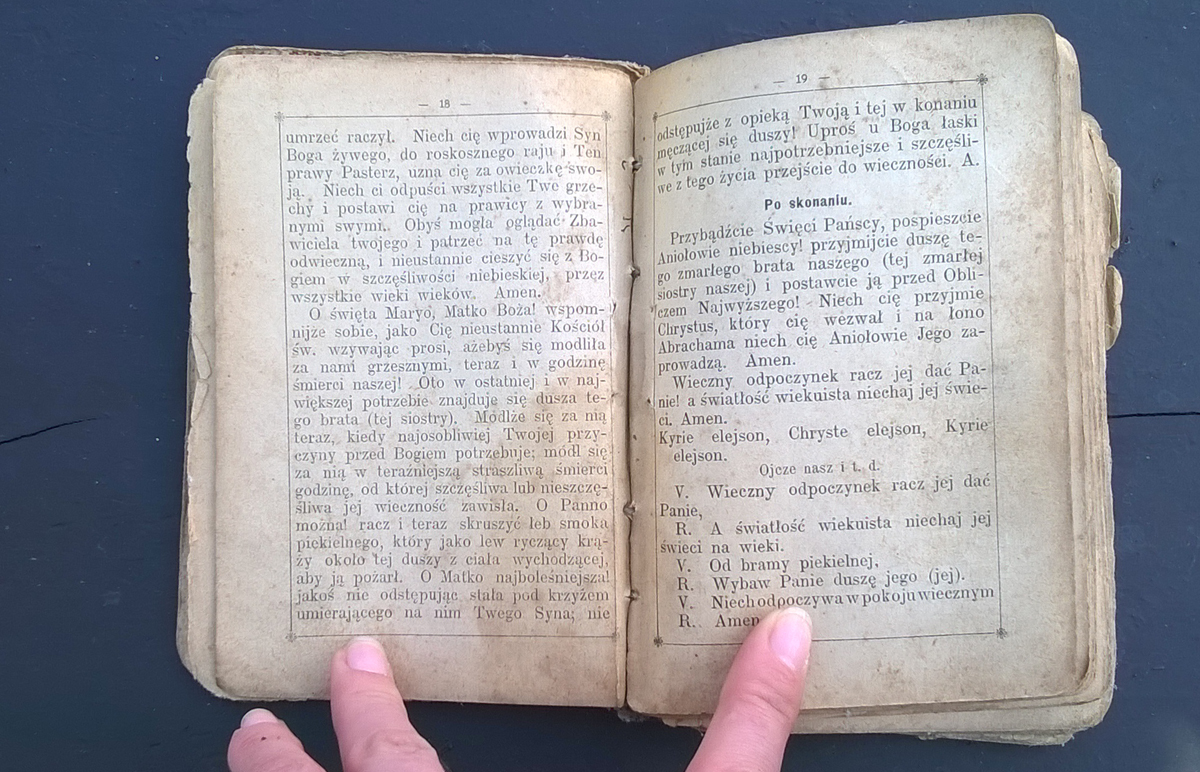 — 18 —
umrzeć raczył. Niech cię wprowadzi Syn
Boga żywego, do roskosznego raju i Ten
prawy Pasterz, uzna cię za owieczkę swo-
ją. Niech ci odpuści wszystkie Twe grze-
chy i postawi cię na prawicy z wybra-
nymi swymi. Obyś mogła oglądać Zba-
wiciela twojego i patrzeć na tę prawdę
odwieczną, i nieustannie cieszyć się z Bo-
giem w szczęśliwości niebieskiej, przez
wszystkie wieki wieków. Amen.
O święta Maryo, Matko Boża! wspom-
nijże sobie, jako Cię nieustannie Kościół
św. wzywając prosi, ażebyś się modliła
za nami grzesznymi, teraz i w godzinę
śmierci naszej! Oto w ostatniej i w naj-
większej potrzebie znajduje się dusza te-
go brata (tej siostry). Módlże się za nią
teraz, kiedy najosobliwiej Twojej przy-
czyny przed Bogiem potrzebuje; módl się
za nią w teraźniejszą straszliwą śmierci
godzinę, od której szczęśliwa lub nieszczę-
śliwa jej wieczność zawisła. O Panno
można! racz i teraz skruszyć łeb smoka
piekielnego, który jako lew ryczący krą-
ży około tej duszy z ciała wychodzącej,
aby ją pożarł. O Matko najboleśniejsza!
jakoś nie odstępując stała pod krzyżem
umierającego na nim Twego Syna; nie
— 19 —
odstępujże z opieką Twoją i tej w konaniu
męczącej się duszy! Uproś u Boga łaski
w tym stanie najpotrzebniejsze i szczęśli-
we z tego życia przejście do wieczności. A.
Po skonaniu.
Przybądźcie Święci Pańscy, pospieszcie
Aniołowie niebiescy! przyjmijcie duszę te-
go zmarłego brata naszego (tej zmarłej
siostry naszej) i postawcie ją przed Obli-
czem Najwyższego! Niech cię przyjmie
Chrystus, który cię wezwał i na łono
Abrachama niech cię Aniołowie Jego za-
prowadzą. Amen.
Wieczny odpoczynek racz jej dać Pa-
nie! a światłość wiekuista niechaj jej świe-
ci. Amen.
Kyrie elejson, Chryste elejson, Kyrie
elejson.
Ojcze nasz i t. d.
V. Wieczny odpoczynek racz jej dać
Panie,
R. A światłość wiekuista niechaj jej
świeci na wieki.
V. Od bramy piekielnej,
R. Wybaw Panie duszę jego (jej).
V. Niech odpoczywa w pokoju wiecznym
R. Amen